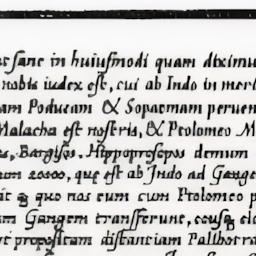 sane in huiusmodi quam diximu
nobis iudex est, cui ab Indo in meri
am Poducam & Sopatmam peruen
Malacha est nostris, & Ptolomeo M
Bargisos. Hippoprosopos demum
um 20000, que est ab Indo ad Gange
quo nos eum cum Ptolomeo p
m Gangem transferunt,
propositam distantiam Palibotra